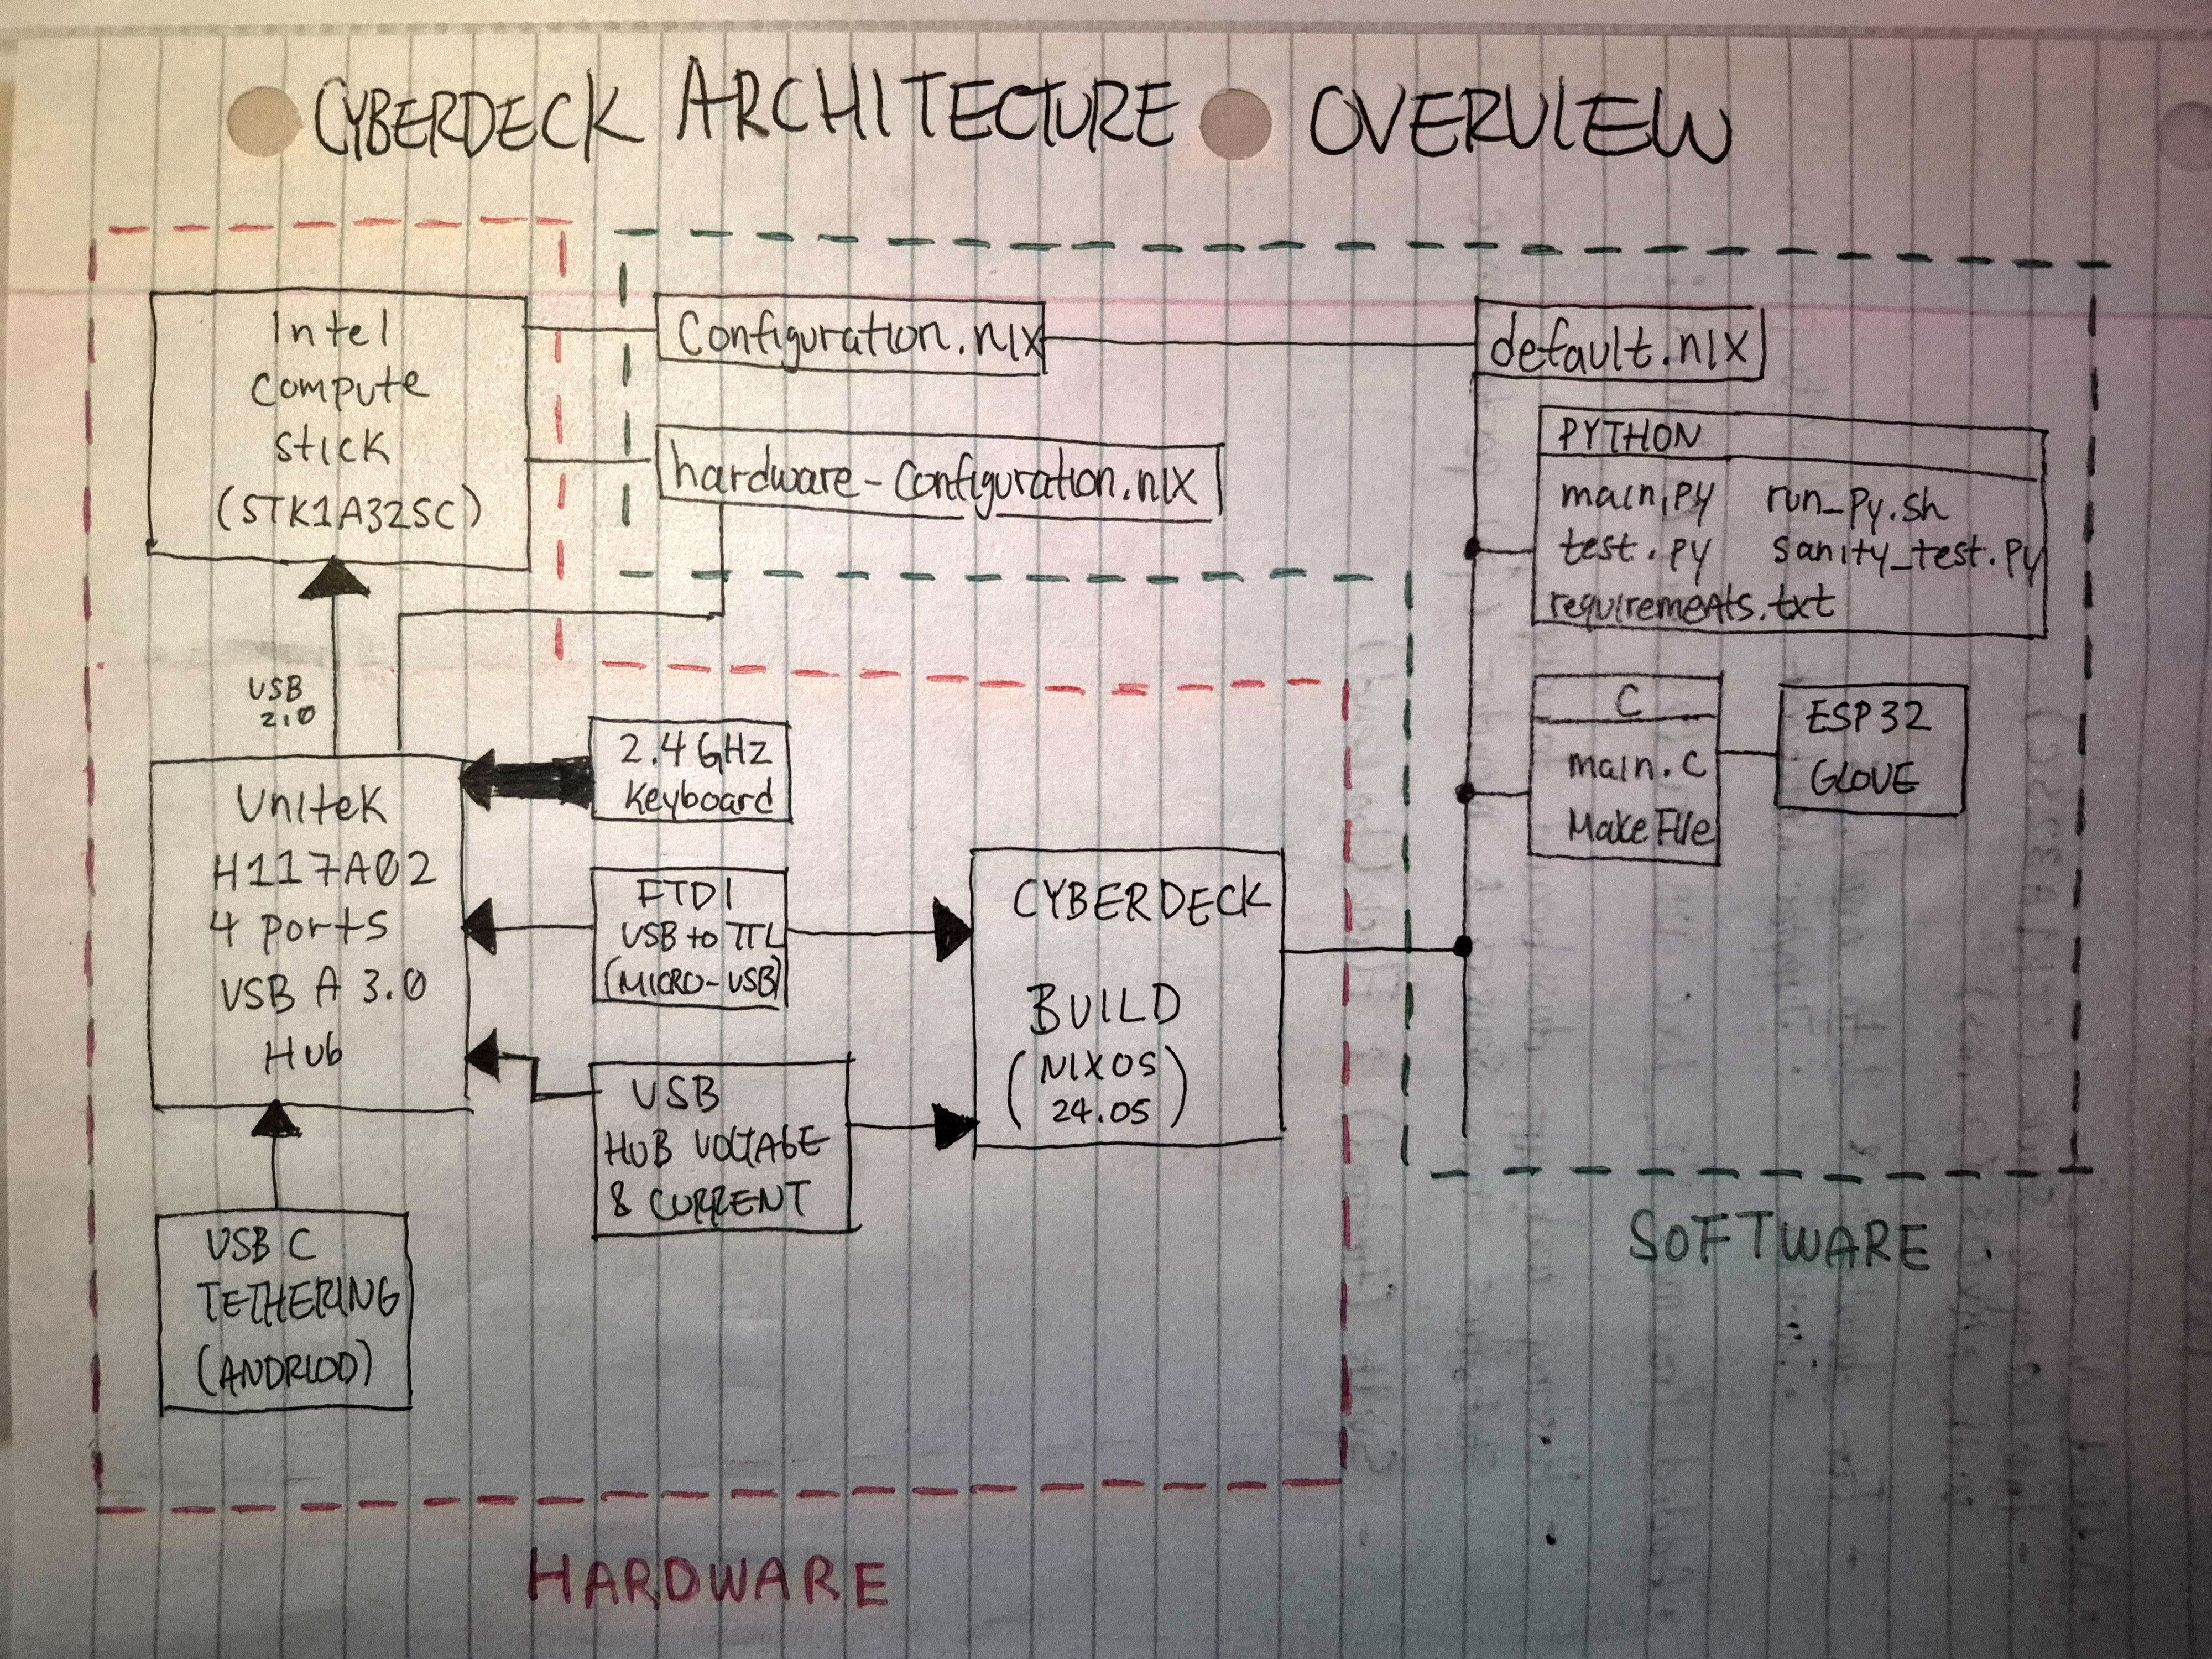 CYBERDECK ARCHITECTURE OVERVIEW
Intel
Compute
stick
(STK1A32SC)
Configuration.nix
hardware-configuration.nix
default.nix
PYTHON
main.py run_py.sh
test.py sanity_test.py
requirements.txt
C
main.c
MakeFile
ESP32
GLOVE
USB
2.0
Unitek
H117A02
4 ports
USB A 3.0
Hub
2.4 GHz
Keyboard
FTDI
USB to TTL
(MICRO-USB)
USB
HUB VOLTAGE
& CURRENT
CYBERDECK
BUILD
(NIXOS
24.05)
USB C
TETHERING
(ANDRIOD)
SOFTWARE
HARDWARE